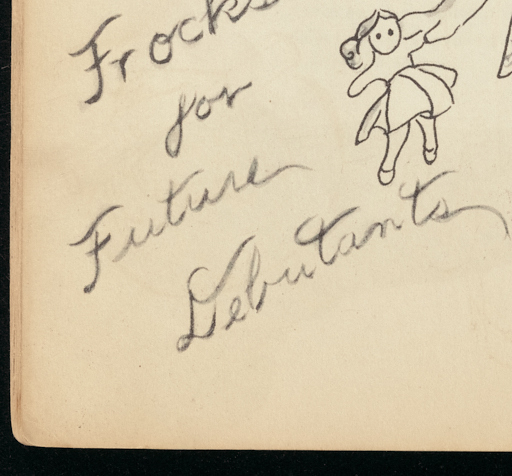 Frocks
for
Future
Debutants